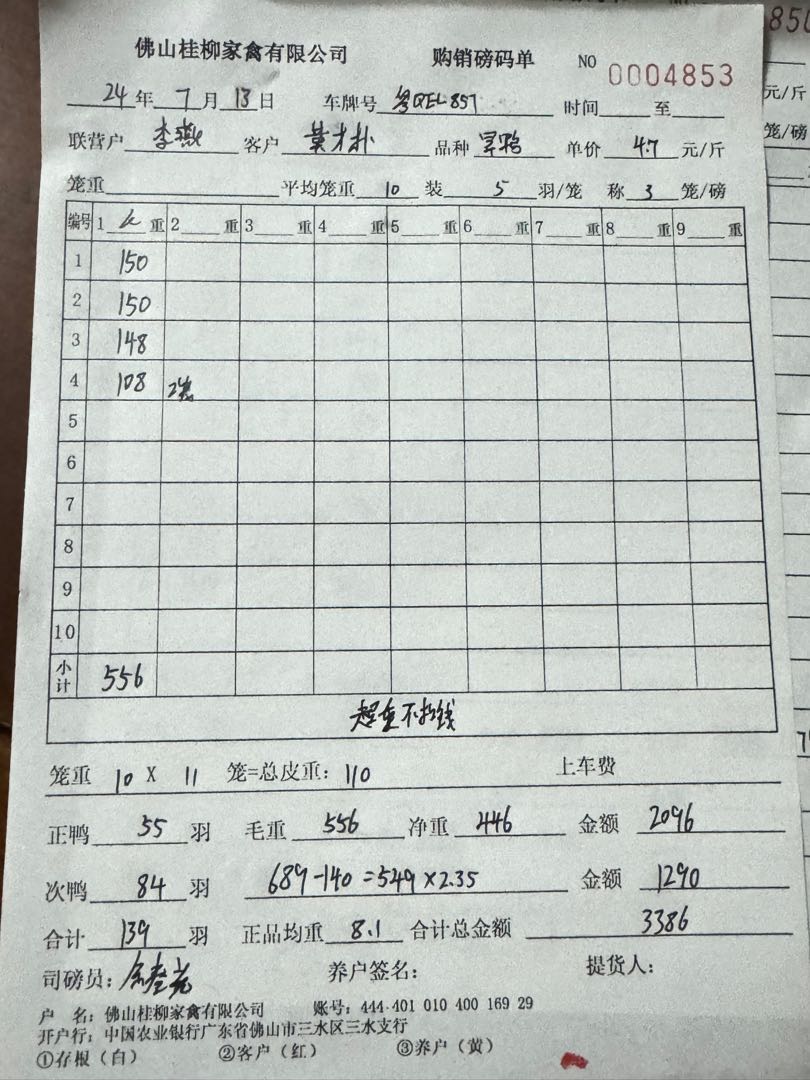 佛山桂柳家禽有限公司 购销磅码单 NO 0004853
24年 7月 13日 车牌号 粤QEL857 时间 至
联营户 李燕 客户 黄才朴 品种 单价 4.7 元/斤
笼重 平均笼重 10 装 5 羽/笼 称 3 笼/磅
编号 1 重 2 重 3 重 4 重 5 重 6 重 7 重 8 重 9 重
1 150
2 150
3 148
4 108 2笼
5
6
7
8
9
10
小计 556
超重不扣钱
笼重 10 X 11 笼=总皮重: 110 上车费
正鸭 55 羽 毛重 556 净重 446 金额 2096
次鸭 84 羽 689-140=549×2.35 金额 1290
合计 139 羽 正品均重 8.1 合计总金额 3386
司磅员: 养户签名: 提货人:
户 名: 佛山桂柳家禽有限公司 账号: 444-401 010 400 169 29
开户行: 中国农业银行广东省佛山市三水区三水支行
①存根（白） ②客户（红） ③养户（黄）
850
元/斤
笼/磅